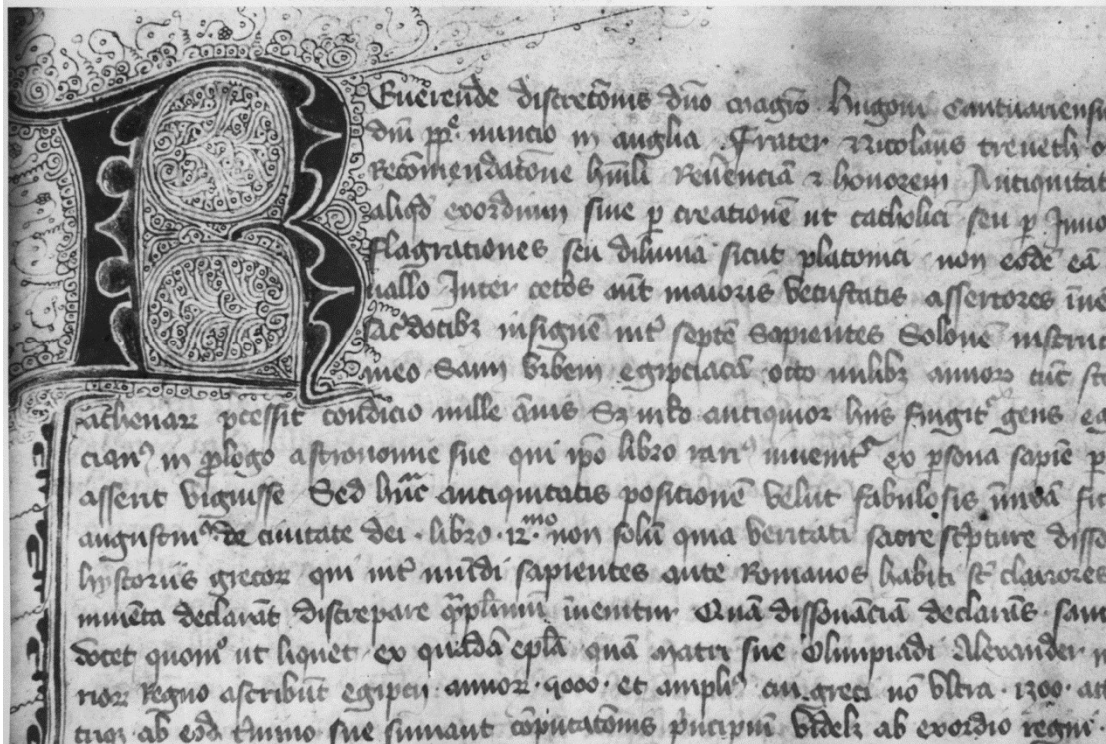 Reuerende discretōnis dn̄o magr̄o hugoni Cantuariensi
dn̄i pp̄e nuncio in anglia Frater Nicolaus treueth o
Recōmendatōne hūili Reu̅enciā ⁊ honorem Antiquitat
aliqd̄ exordium siue p̱ creationē ut catholici seu p̱ Inno
flagrationes seu diluuia sicut platonici non eodē eā
uallo Inter cetōs aut̄ maioris vetustatis assertores īue
sac̄dotibꝫ insignē int̄ septē sapientes Solonē instruc
meo Saim vrbem egipciacā octo milibꝫ annoꝝ tūc
athenaꝝ p̄cessit condicio mille ānis Sꝫ mlt̄o antiquior hiis fingit᷑ gens eg
cianꝰ in ꝓlogo astronomie sue qui ip̄o libro rarꝰ inuenit᷑ ex p̱sona sapiē p
asserit viguisse Sed hāc antiquitatis positionē velut fabulosis
augustinꝰ de ciuitate dei · libro · 12 · mo non solū quia veritati sacre sc̄pture disso
hystoriis grecoꝝ qui int̄ mūdi sapientes ante Romanos habiti st̄ clariores
inuēta declarāt discrepare q̄ꝫplimū īuenitur Quā dissonanciā declarās sanc
docet quomō ut liquet ex quādā ep̄la quā matri sue Olimpiadi Alexander m
rior Regno ascribūt egipcii annoꝝ · 9000 · et ampliꝰ cū greci nō vltra · 1300 · at
ab eod̄ t̄mino sue sumant cōputatōnis p̄ncipiū vidꝫ ab exordio regni ·